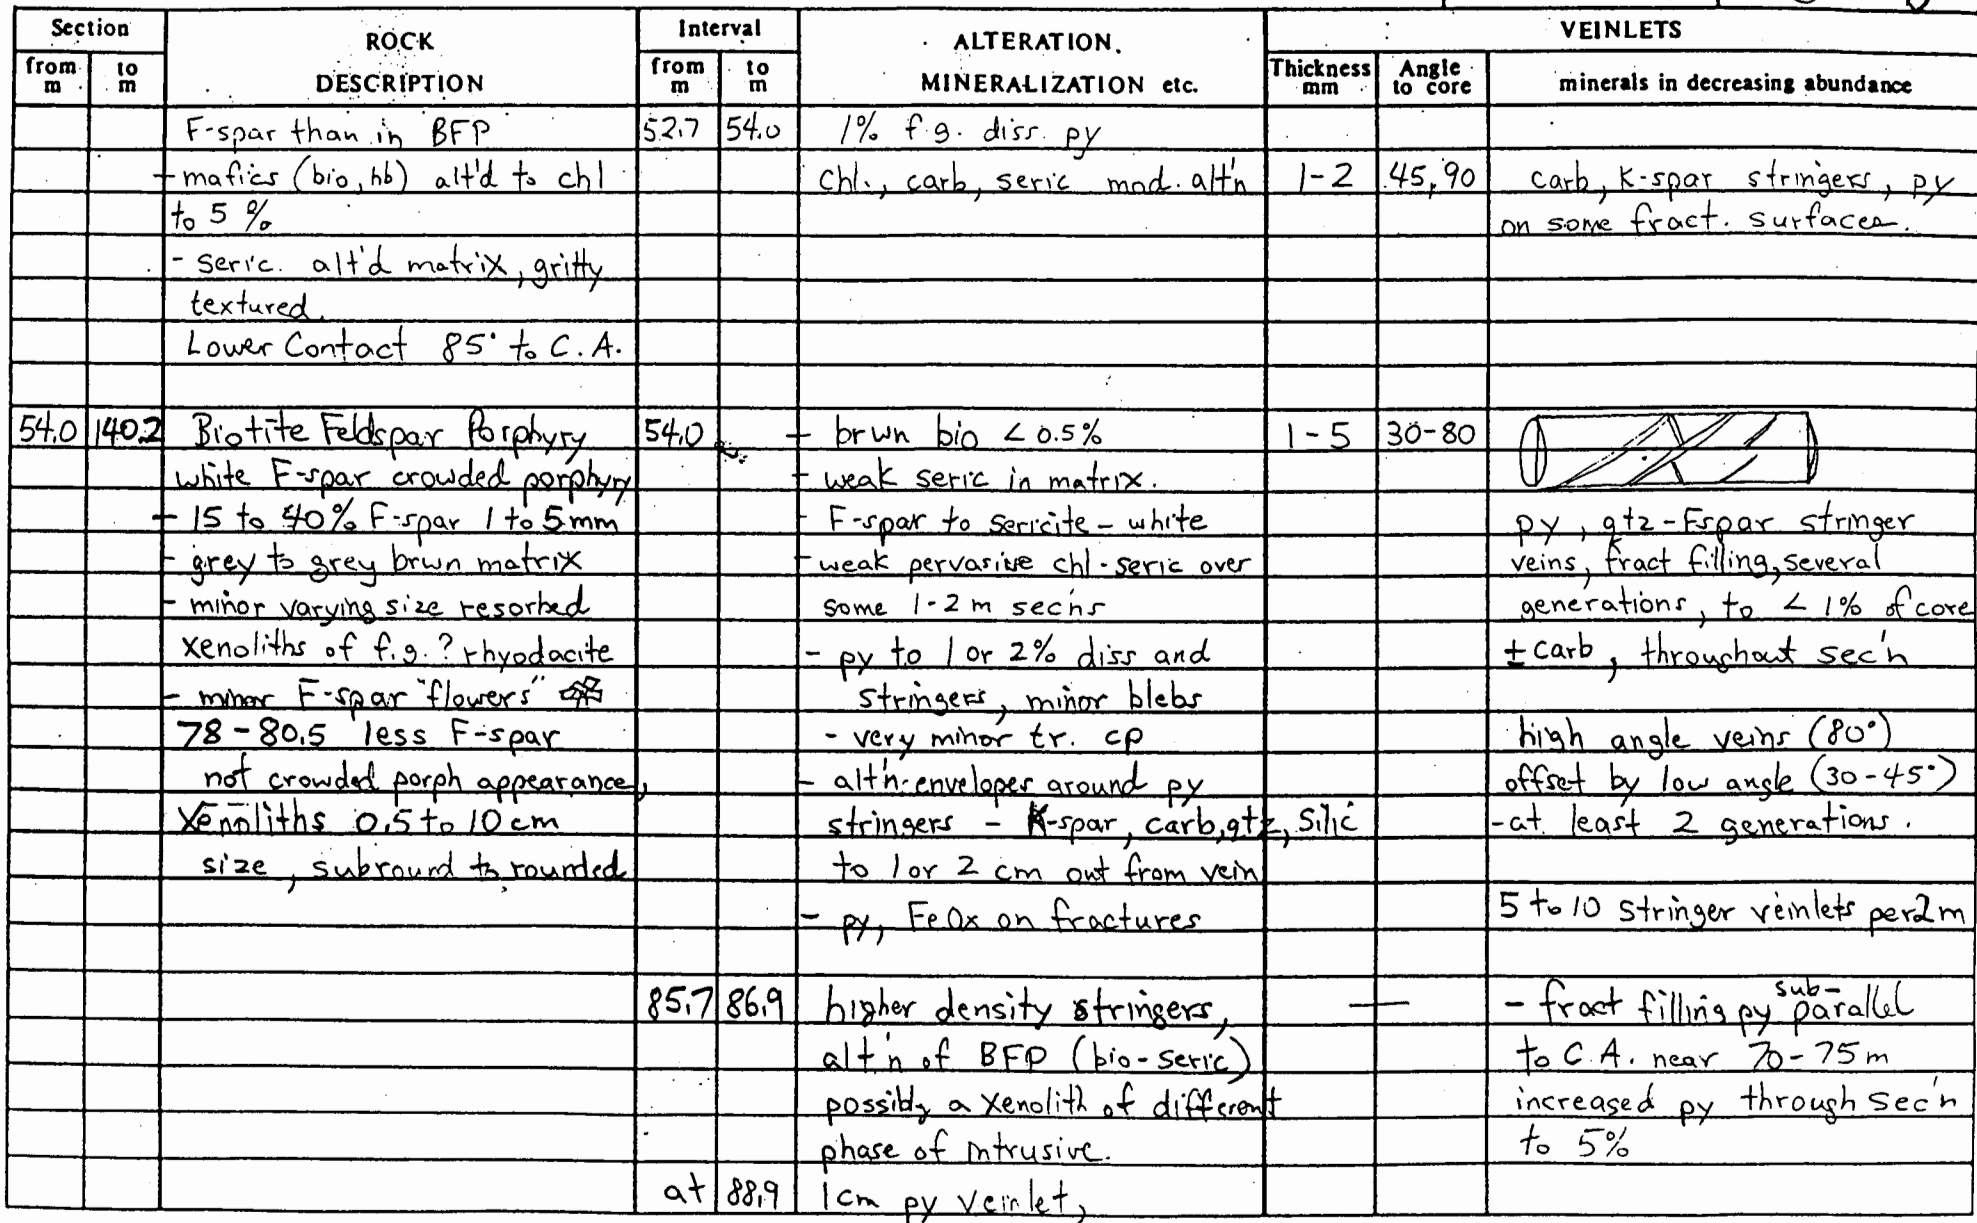 Section
ROCK
Interval
ALTERATION.
VEINLETS
from to
DESCRIPTION
from to
MINERALIZATION etc.
Thickness Angle
minerals in decreasing abundance
m m
m m
mm to core
F-spar than in BFP 52.7 54.0 1% f.g. diss. py
- mafics (bio, hb) alt'd to chl chl., carb, seric mod. alt'n 1-2 45,90 carb, K-spar stringers, py
to 5% on some fract. surfaces.
- seric. alt'd matrix, gritty
textured.
Lower Contact 85° to C.A.
54.0 140.2 Biotite Feldspar Porphyry 54.0 - brwn bio < 0.5% 1-5 30-80
white F-spar crowded porphyry - weak seric in matrix.
- 15 to 40% F-spar 1 to 5mm - F-spar to sericite - white py, qtz-Fspar stringer
- grey to grey brwn matrix - weak pervasive chl-seric over veins, fract filling, several
- minor varying size resorbed some 1-2 m sec'ns generations, to < 1% of core
xenoliths of f.g. ? rhyodacite - py to 1 or 2% diss and ± carb, throughout sec'n
- minor F-spar "flowers" stringers, minor blebs
78-80.5 less F-spar - very minor tr. cp high angle veins (80°)
not crowded porph appearance, - alt'n envelopes around py offset by low angle (30-45°)
Xenoliths 0.5 to 10 cm stringers - K-spar, carb, qtz, silic - at least 2 generations.
size, subround to rounded to 1 or 2 cm out from vein
- py, FeOx on fractures 5 to 10 stringer veinlets per 2m
85.7 86.9 higher density stringers, — - fract filling py sub-parallel
alt'n of BFP (bio-seric) to C.A. near 70-75m
possibly a xenolith of different increased py through sec'n
phase of intrusive. to 5%
at 88.9 1cm py veinlet,